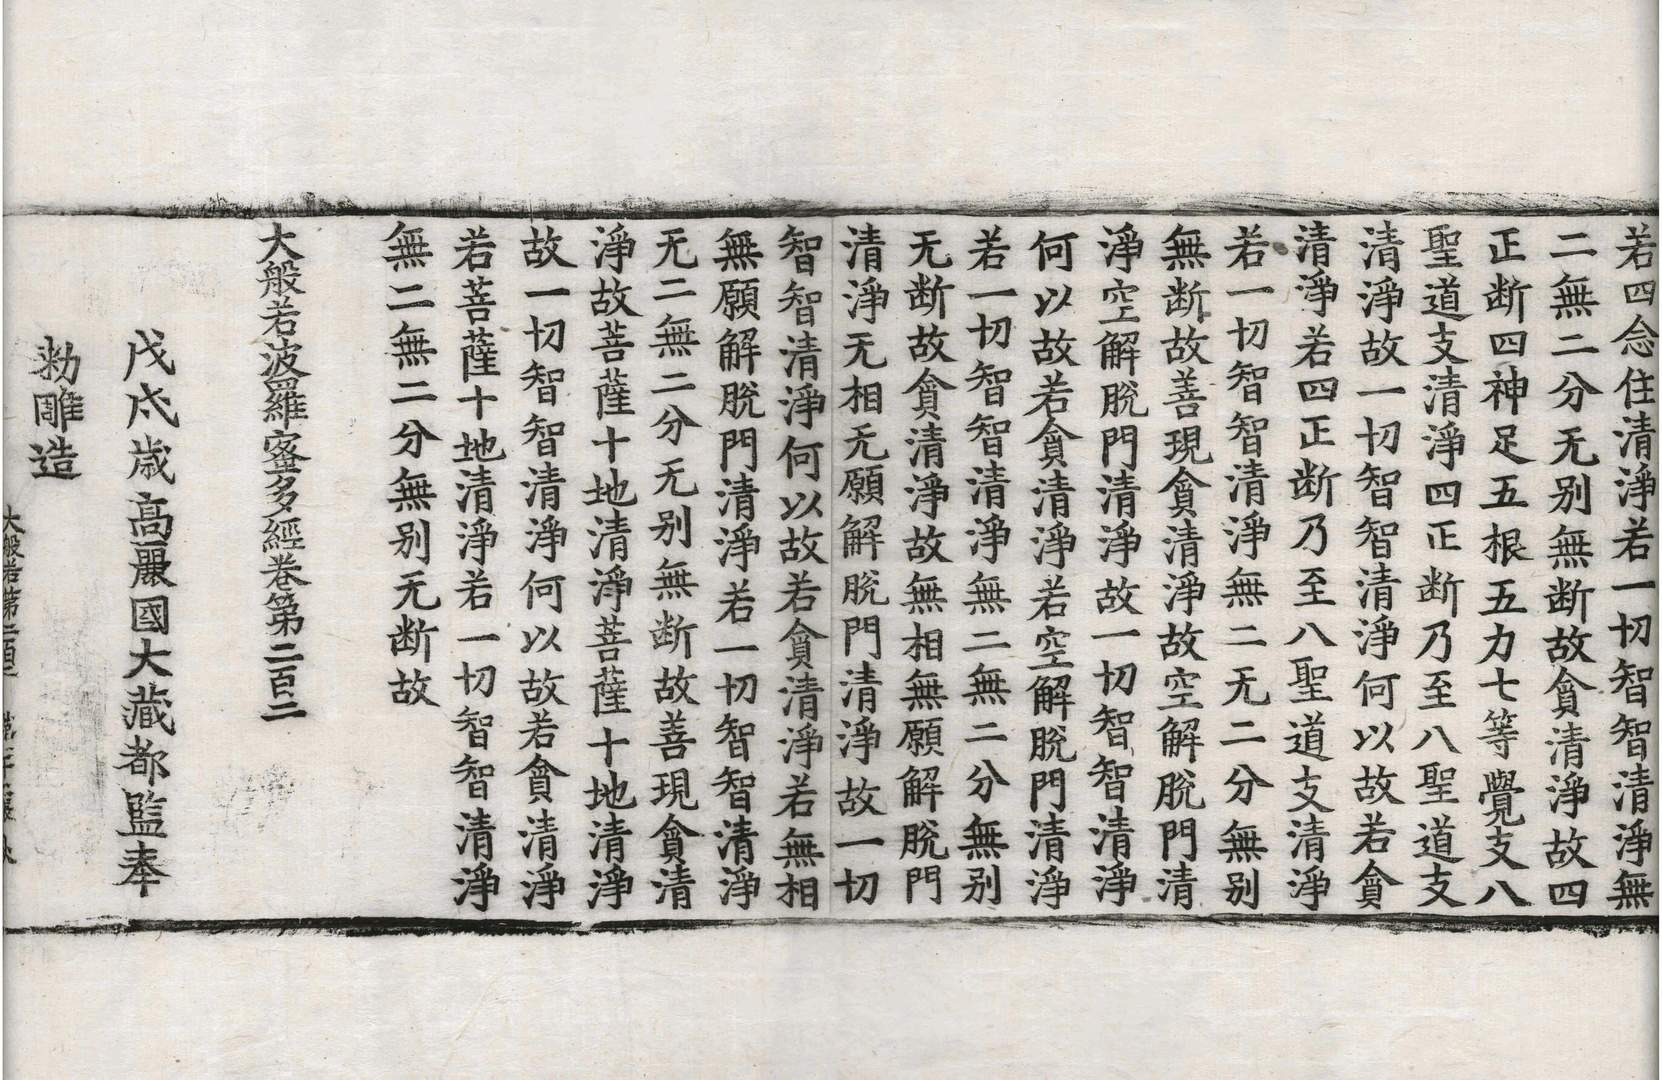 若四念住清淨若一切智智清淨無
二無二分无别無断故貪清淨故四
正断四神足五根五力七等覺支八
聖道支清淨四正断乃至八聖道支
清淨故一切智智清淨何以故若貪
清淨若四正断乃至八聖道支清淨
若一切智智清淨無二无二分無别
無断故善現貪清淨故空解脫門清
淨空解脫門清淨故一切智智清淨
何以故若貪清淨若空解脫門清淨
若一切智智清淨無二無二分無别
无断故貪清淨故無相無願解脫門
清淨无相无願解脫門清淨故一切
智智清淨何以故若貪清淨若無相
無願解脫門清淨若一切智智清淨
无二無二分无别無断故善現貪清
淨故菩薩十地清淨菩薩十地清淨
故一切智智清淨何以故若貪清淨
若菩薩十地清淨若一切智智清淨
無二無二分無别无断故
大般若波羅蜜多經卷第二百二
戊戌歲高麗國大藏都監奉
勑雕造
大般若第二百二